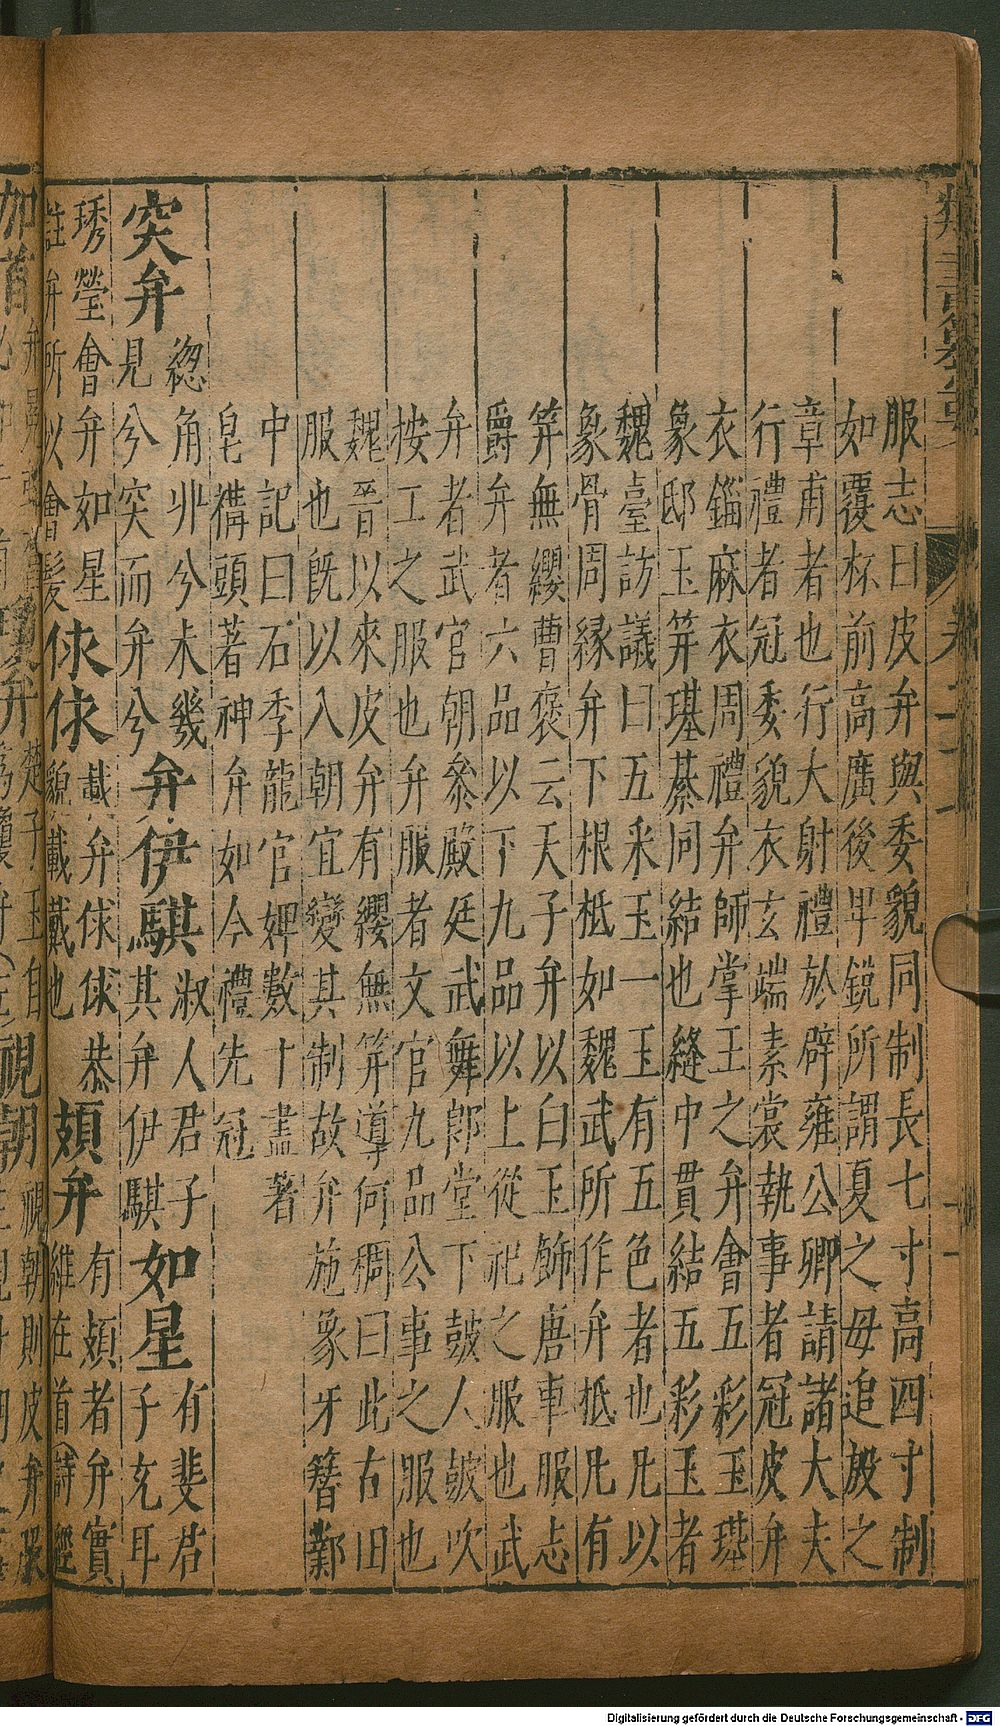 服志曰皮弁與委貌同制長七寸高四寸制
如覆杯前高廣後卑銳所謂夏之毋追殷之
章甫者也行大射禮於辟雍公卿請諸大夫
行禮者冠委貌衣玄端素裳執事者冠皮弁
衣錙麻衣周禮弁師掌王之弁會五彩玉璂
象邸玉筓璂綦同結也縫中貫結五彩玉者
魏臺訪議曰五釆玉一玉有五色者也凡以
象骨周縁弁下根柢如魏武所作弁柢凡有
筓無纓曹褒云天子弁以白玉飾唐車服志
爵弁者六品以下九品以上從祀之服也武
弁者武官朝叅殿廷武舞郎堂下鼓人鼓吹
按工之服也弁服者文官九品公事之服也
魏晉以來皮弁有纓無筓導何稠曰此古田
服也旣以入朝宜變其制故弁施象牙簪鄴
中記曰石季龍官婢數十盡著
皂褠頭著神弁如今禮先冠
突弁
緫角丱兮未幾
見兮突而弁兮
弁伊騏
淑人君子
其弁伊騏
如星
有斐君
子充耳
琇瑩會弁如星
註弁所以會髮
俅俅
載弁俅俅恭
貌載戴也
頍弁
有頍者弁實
維在首詩經
視朝
視朝則皮弁服
Digitalisierung gefördert durch die Deutsche Forschungsgemeinschaft - DFG